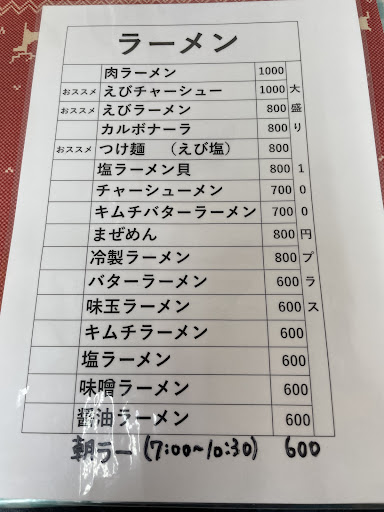 ラーメン
肉ラーメン 1000
おススメ えびチャーシュー 1000
おススメ えびラーメン 800
カルボナーラ 800
おススメ つけ麺 （えび塩） 800
塩ラーメン貝 800
チャーシューメン 700
キムチバターラーメン 700
まぜめん 800
冷製ラーメン 800
バターラーメン 600
味玉ラーメン 600
キムチラーメン 600
塩ラーメン 600
味噌ラーメン 600
醤油ラーメン 600
大盛り 100円プラス
朝ラー (7:00~10:30) 600